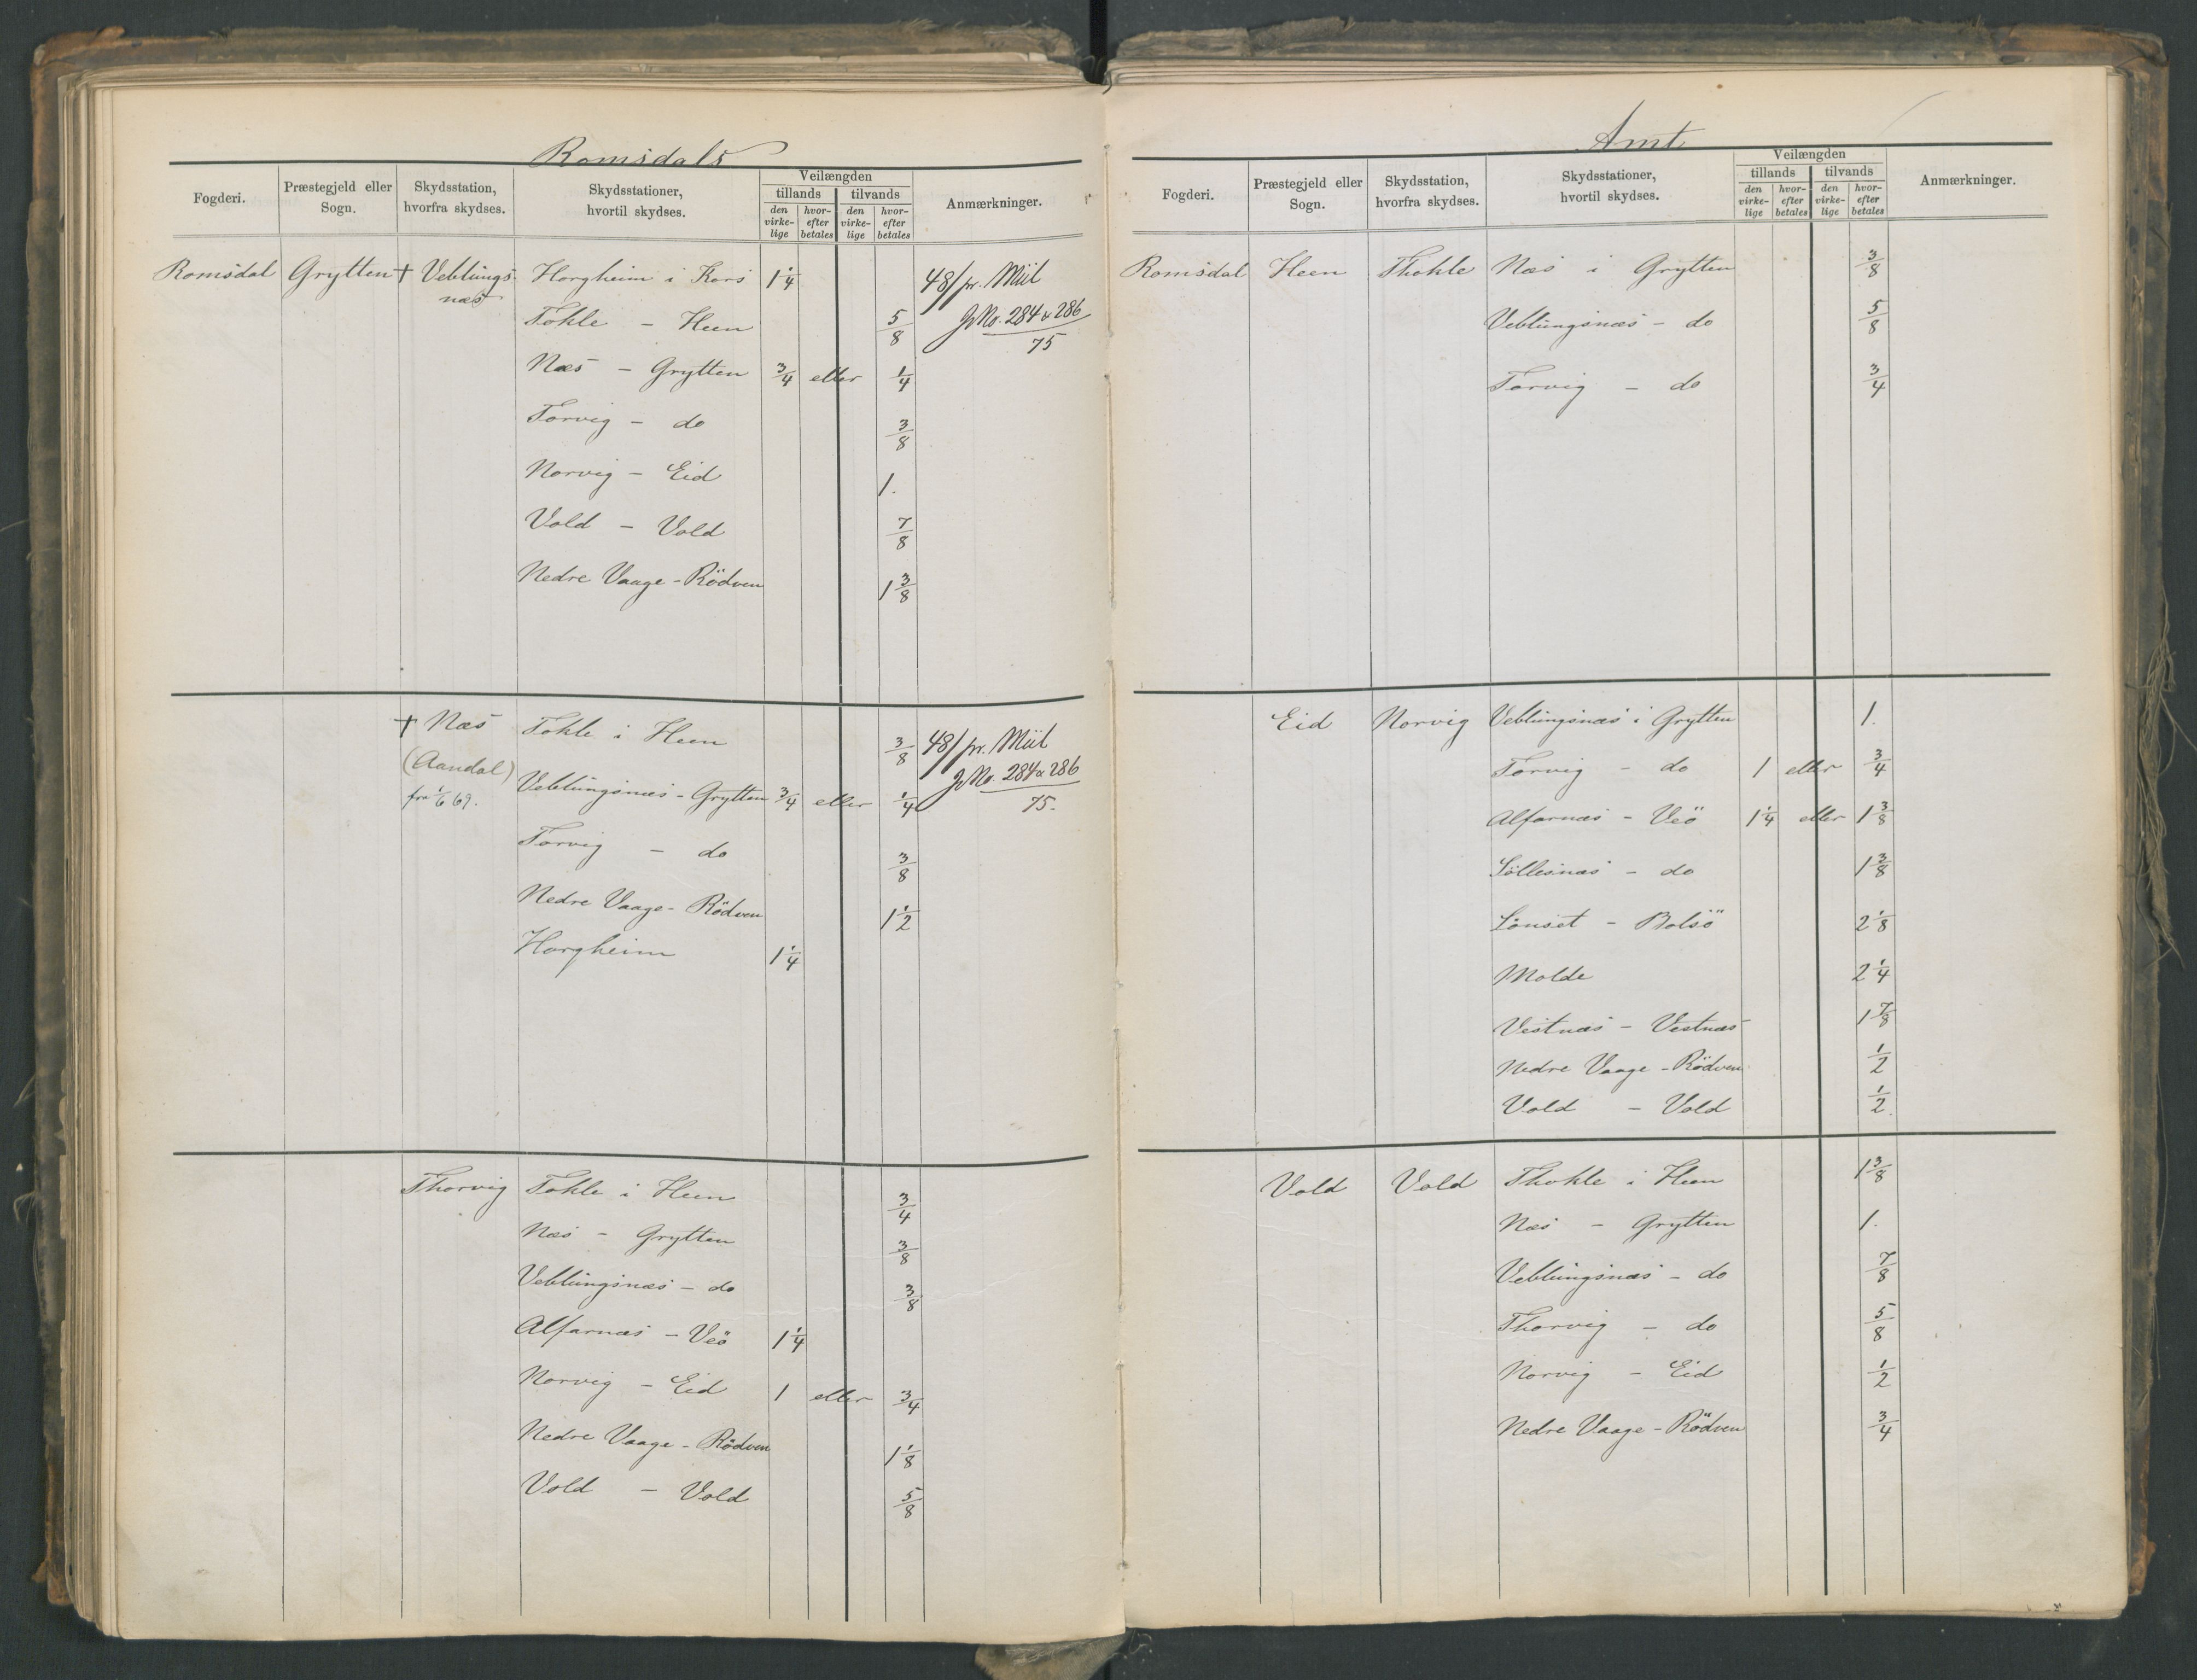 Romsdals
Fogderi. Præstegjeld eller Sogn. Skydsstation, hvorfra skydses. Skydsstationer, hvortil skydses. Veilængden tillands tilvands den virke-lige hvor-efter betales den virke-lige hvor-efter betales Anmærkninger.
Romsdal Grytten + Veblungs- Horgheim i Kors 1 1/4 48/ pr. Miil
næs
Tokle - Heen 5/8 JNo. 284 & 286
75
Næs - Grytten 3/4 eller 1/4
Torvig - do 3/8
Norvig - Eid 1.
Vold - Vold 7/8
Nedre Vaage - Rödven 1 3/8
+ Næs Tokle i Heen 3/8 48/ pr. Miil
(Aandal) JNo. 284 & 286
fra 1/6 69. Veblungsnæs - Grytten 3/4 eller 1/4 75.
Torvig - do 3/8
Nedre Vaage - Rödven 1 1/2
Horgheim 1 1/4
Thorvig Tokle i Heen 3/4
Næs - Grytten 3/8
Veblungsnæs - do 3/8
Alfarnæs - Veö 1 1/4
Norvig - Eid 1 eller 3/4
Nedre Vaage - Rödven 1 1/8
Vold - Vold 5/8
Amt
Fogderi. Præstegjeld eller Sogn. Skydsstation, hvorfra skydses. Skydsstationer, hvortil skydses. Veilængden tillands tilvands den virke-lige hvor-efter betales den virke-lige hvor-efter betales Anmærkninger.
Romsdal Heen Thokle Næs i Grytten 3/8
Veblungsnæs - do 5/8
Torvig - do 3/4
Eid Norvig Veblungsnæs i Grytten 1.
Torvig - do 1 eller 3/4
Alfarnæs - Veö 1 1/4 eller 1 3/8
Söllesnæs - do 1 3/8
Lönset - Bolsö 2 1/8
Molde 2 1/4
Vestnæs - Vestnæs 1 7/8
Nedre Vaage - Rödven 1/2
Vold - Vold 1/2.
Vold Vold Thokle i Heen 1 3/8
Næs - Grytten 1.
Veblungsnæs - do 7/8
Thorvig - do 5/8
Norvig - Eid 1/2
Nedre Vaage - Rödven 3/4